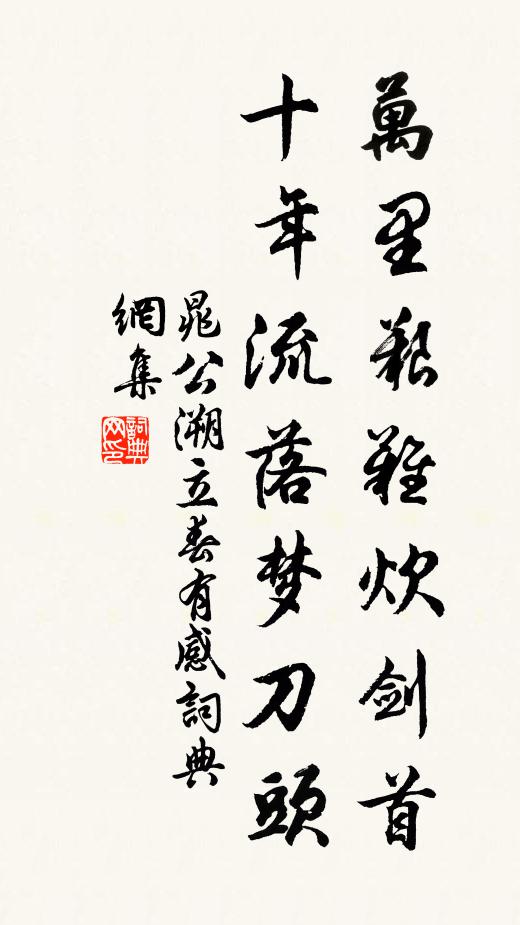 萬里艱難炊剑首
十年流落梦刀頭
晁公溯立春有感詞典
網集
詞典
网印